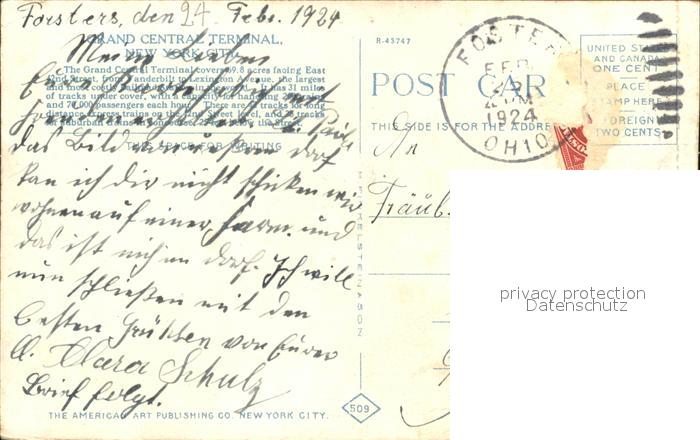 Forsters, den 24. Febr. 1924
GRAND CENTRAL TERMINAL,
NEW YORK CITY.
The Grand Central Terminal covers 69.8 acres facing East
42nd Street, from Vanderbilt to Lexington Avenue, the largest
and most costly railroad station in the world. It has 31 miles
of tracks under cover, with a capacity for handling 200 trains
and 70,000 passengers each hour. There are 42 tracks for long
distance express trains on the 42nd Street level, and 25 tracks
for suburban trains
THIS SPACE FOR WRITING
Meine Lieben
das Bild von unserm dorf
kan ich dir nicht schicken wir
wohnen auf einer Farm. und
das ist nich im dorf. Ich will
nun schließen mit den
besten Grüßen von Eurer
Clara Schulz
Brief folgt.
THE AMERICAN ART PUBLISHING CO. NEW YORK CITY.
509
R-43747
POST CARD
THIS SIDE IS FOR THE ADDRE
FOSTER
FEB
24
1924
OHIO
UNITED STATES
AND CANADA
ONE CENT
PLACE
STAMP HERE
FOREIGN
TWO CENTS
An
Fräul.
privacy protection
Datenschutz